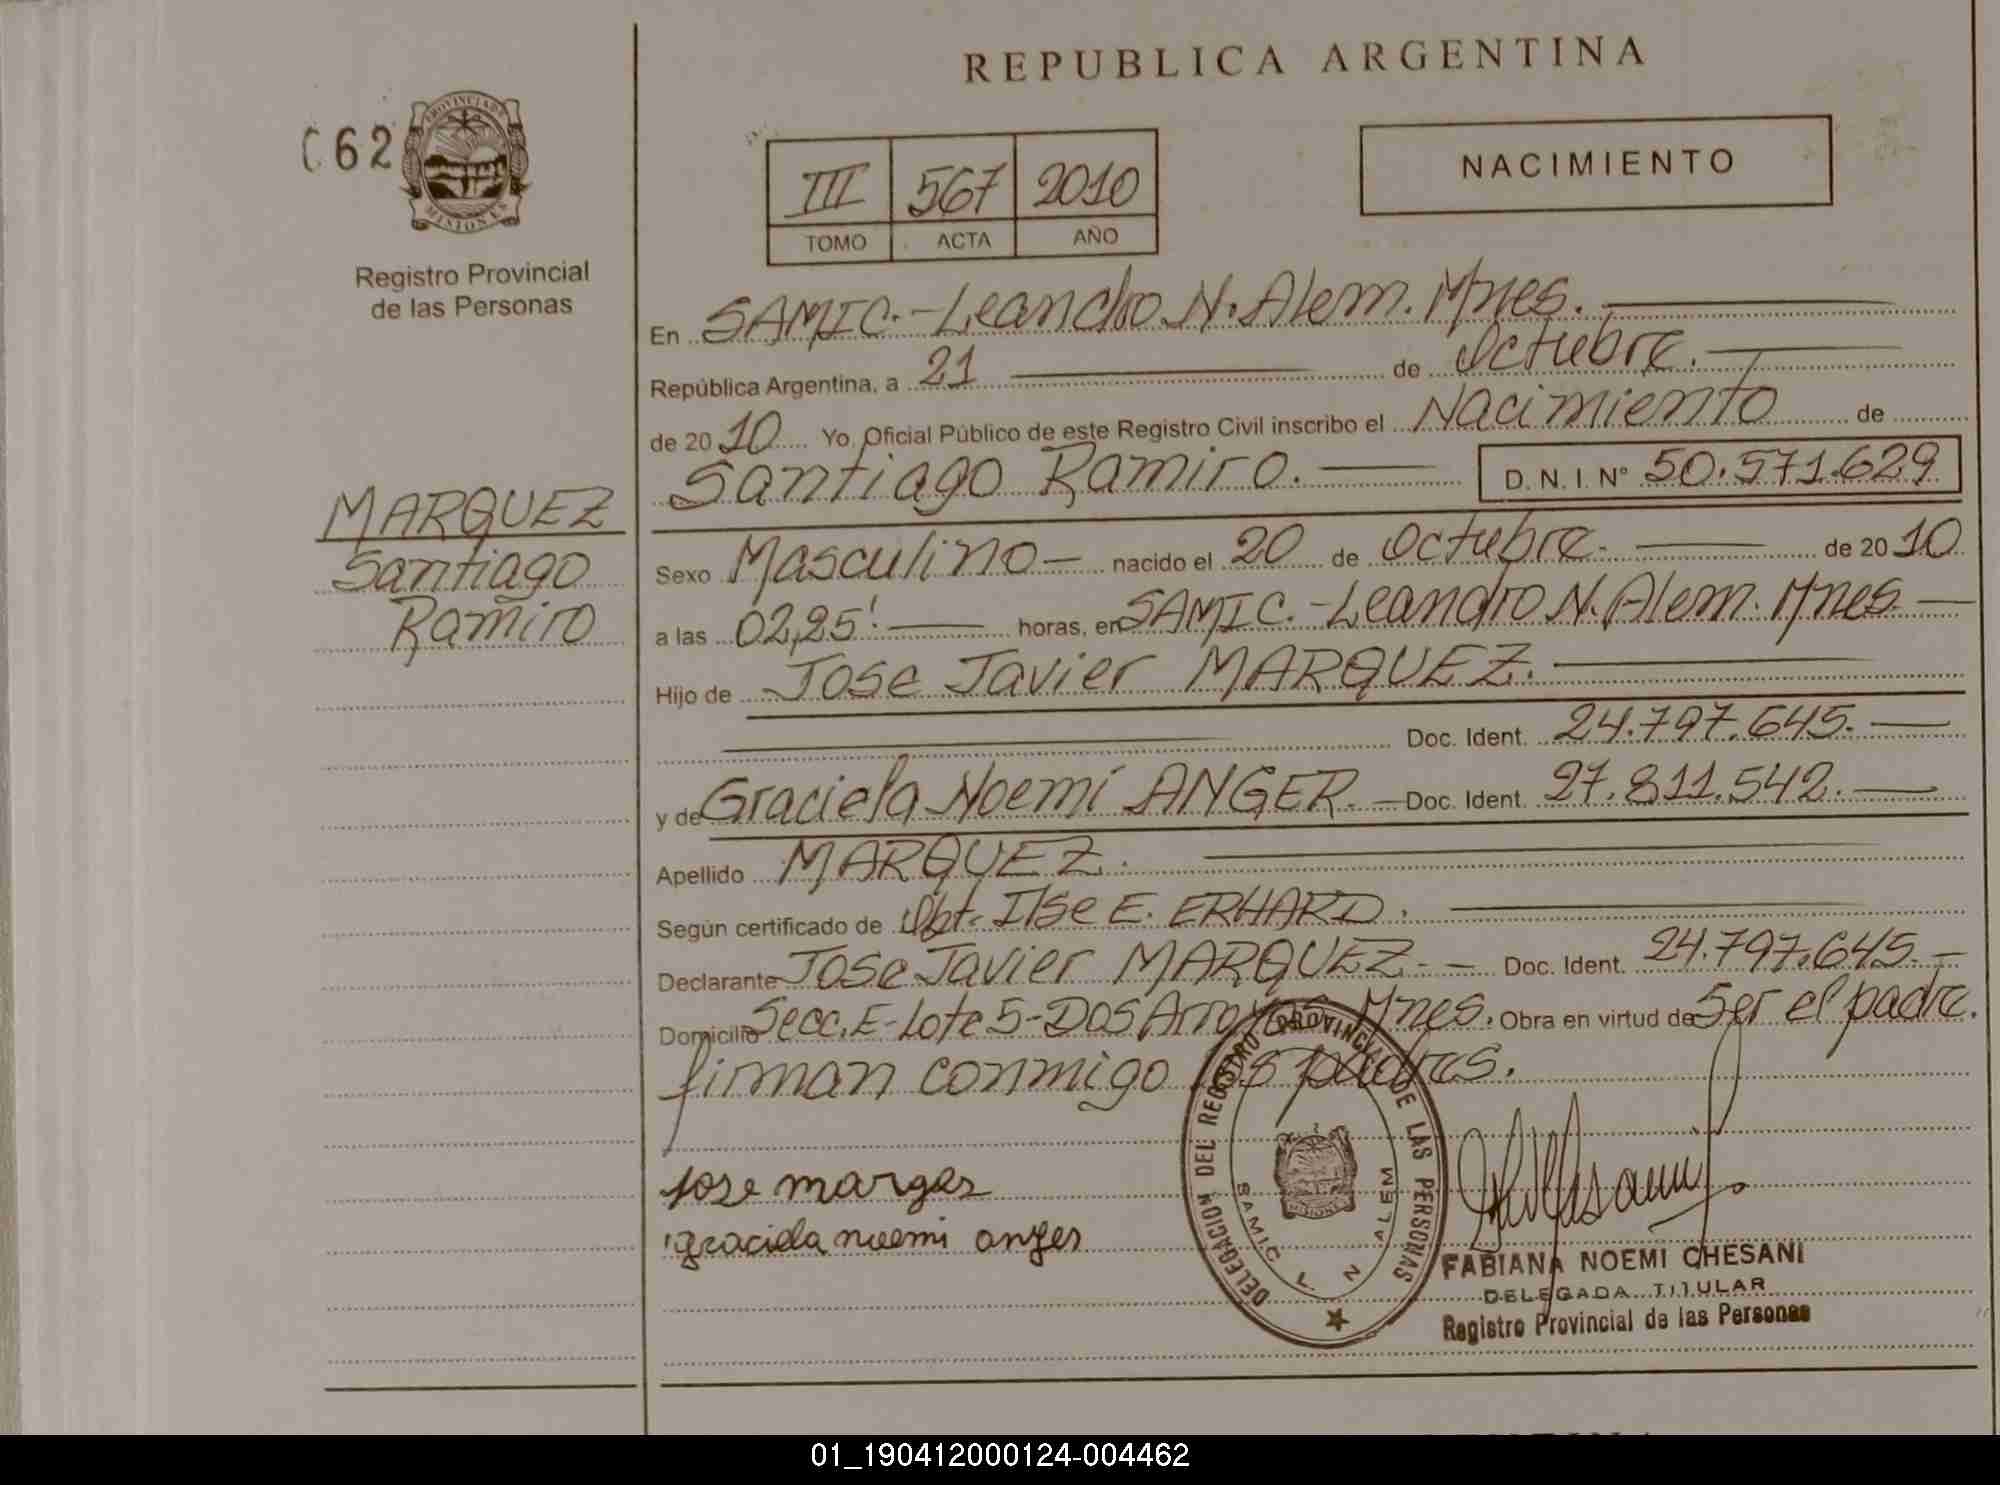 REPUBLICA ARGENTINA
62
PROVINCIA DE
MISIONES
Registro Provincial
de las Personas
III 567 2010
TOMO ACTA AÑO
NACIMIENTO
En SAMIC.-Leandro N. Alem. Mnes.
República Argentina, a 21 de Octubre.
de 2010 Yo, Oficial Público de este Registro Civil inscribo el Nacimiento de
Santiago Ramiro. D. N. I. N° 50.571.629
MARQUEZ
Santiago
Ramiro
Sexo Masculino nacido el 20 de Octubre. de 2010
a las 02,25' horas, en SAMIC.-Leandro N. Alem. Mnes.
Hijo de Jose Javier MARQUEZ.
Doc. Ident. 24.797.645.
y de Graciela Noemí ANGER. Doc. Ident. 27.811.542.
Apellido MARQUEZ.
Según certificado de Obt. Ilse E. ERHARD.
Declarante Jose Javier MARQUEZ Doc. Ident. 24.797.645.
Domicilio Secc. E-Lote 5-Dos Arroyos Mnes. Obra en virtud de Ser el padre.
firman conmigo los padres.
DELEGACION DEL REGISTRO PROVINCIAL DE LAS PERSONAS
SAMIC L. N ALEM
MISIONES
Jose marques
graciela noemi anger
FABIANA NOEMI CHESANI
DELEGADA TITULAR
Registro Provincial de las Personas
01_190412000124-004462